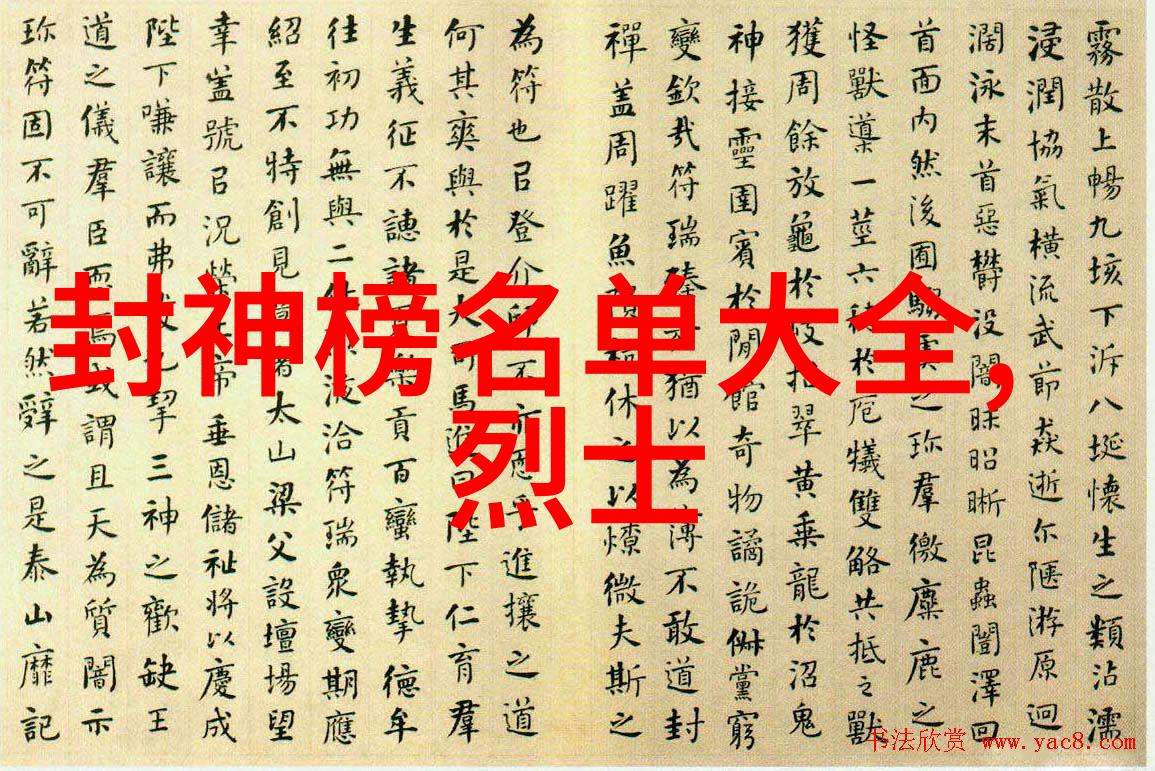 封神榜名单大全,
烈士
霧散上暢九垓下泝八埏懷生之類沾濡
浸潤協氣橫流武節猋逝尔陿游原迥
濶泳末首惡欝没闇昧昭晰昆蟲闓澤回
首面内然後囿騶虞之珍羣徼麋鹿之
怪獸導一莖六穗於庖犧雙觡共抵之獸
獲周餘放龜於岐招翠黃乗龍於沼鬼
神接靈圉賓於閒館奇物譎詭俶黨窮
變欽哉符瑞臻猶以為薄不敢道封
禪盖周躍魚隕休之以燎微夫斯之
為符也㠯登介邱不亦恧乎進攘之道
何其爽與於是大司馬進曰陛下仁育羣
生義征不譓諸樂貢百蠻執摯德牟
往初功無與二休浹洽符瑞衆變期應
紹至不特創見者太山梁父設壇場望
幸盖號㠯况榮帝垂恩儲祉將以慶成
陛下嗛讓而弗發也挈三神之歡缺王
道之儀羣臣恧焉或謂且天為質闇示
珍符固不可辭若然辤之是泰山靡記
书法欣赏 www.yac8.com